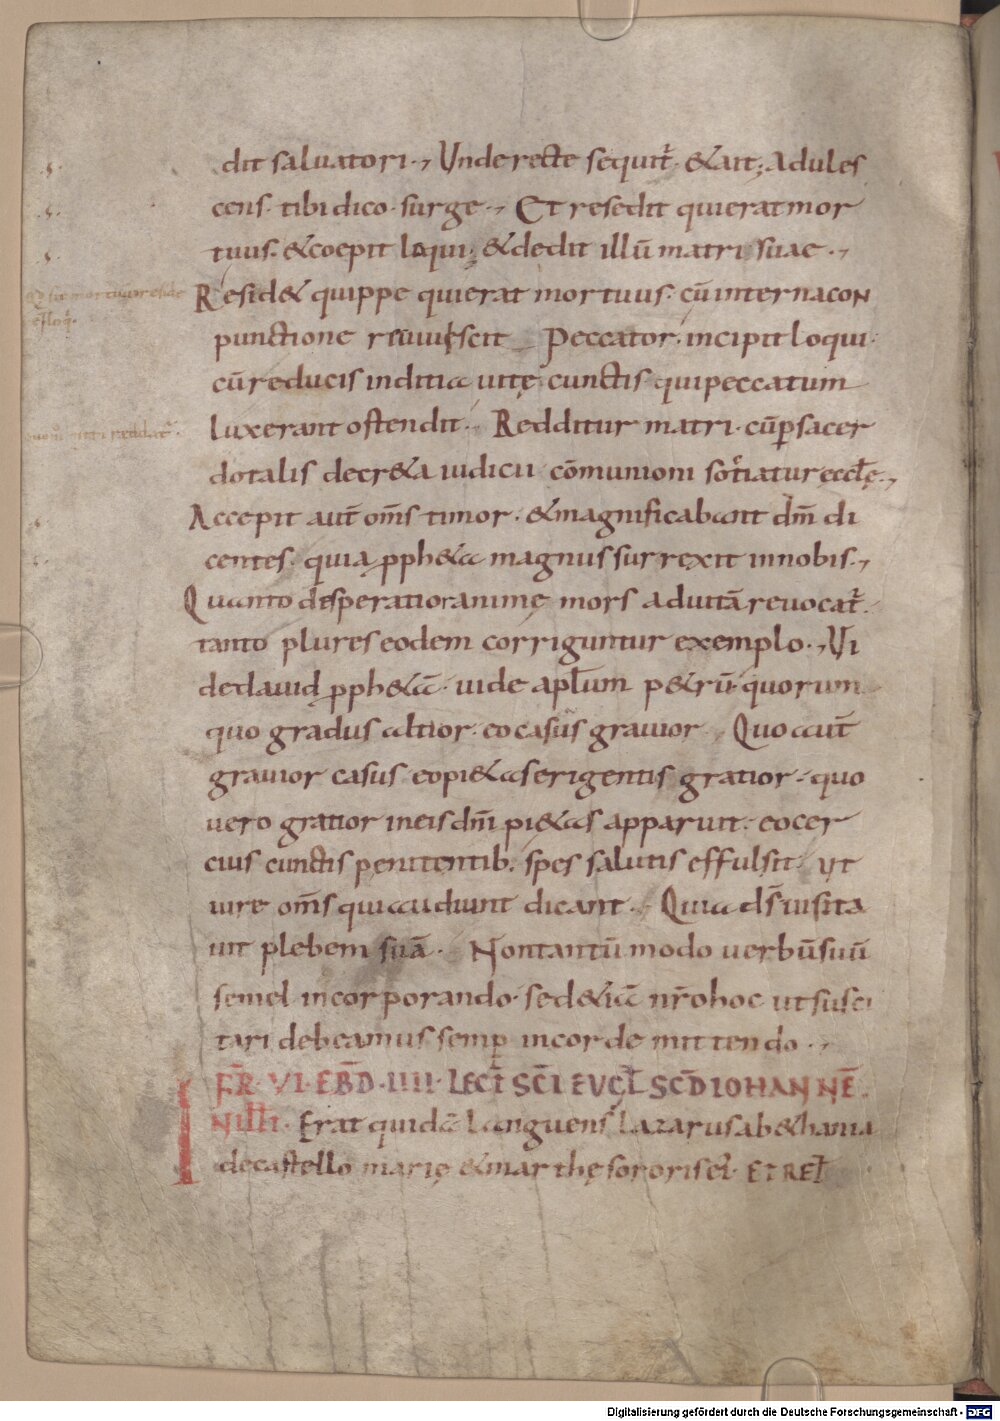 dit saluatori·, Unde recte sequit̉· & ait; adules
cens· tibi dico· surge·, Et resedit qui erat mor
tuus· & coepit loqui; & dedit illū matri suae·,
Resid& quippe qui erat mortuus· cū interna con
punctione reuiuiscit Peccator· incipit loqui·
cū reducis inditia uitę cunctis qui peccatum
luxerant ostendit·, Redditur matri· cū p̱ sacer
dotalis decr&a iudicii cōmunioni sotiatur ęccłę·,
Accepit aut̄ om̄s timor· & magnificabant dm̄ di
centes· quia ꝓph&a magnus surrexit in nobis·,
Quanto desperatior animę mors ad uitā reuocat̉·
tanto plures eodem corriguntur exemplo·, Vi
de dauid ꝓph&ā· uide apłum p&rū· quorum
quo gradus altior· eo casus grauior, Quo aut̄
grauior casus· eo pi&as erigentis gratior· quo
uero gratior in eis dm̄i pi&as apparuit· eo cer
cius cunctis penitentib· spes salutis effulsit· ut
iure om̄s qui audiunt dicant· Quia ds̄ uisita
uit plebem suā· Non tantū modo uerbū suū
semel incorporando· sed &iā nr̄o hoc ut susci
tari debeamus semp̱ in corde mittendo·,
FR̄· VI· EBD̄· IIII· LECT̄ SC̄I EVGŁ SCD̄ IOHANNĒ·
Erat quidā languens lazarus a b&hania
de castello marię & marthę sororis ei· ET REŁ
Digitalisierung gefördert durch die Deutsche Forschungsgemeinschaft - DFG